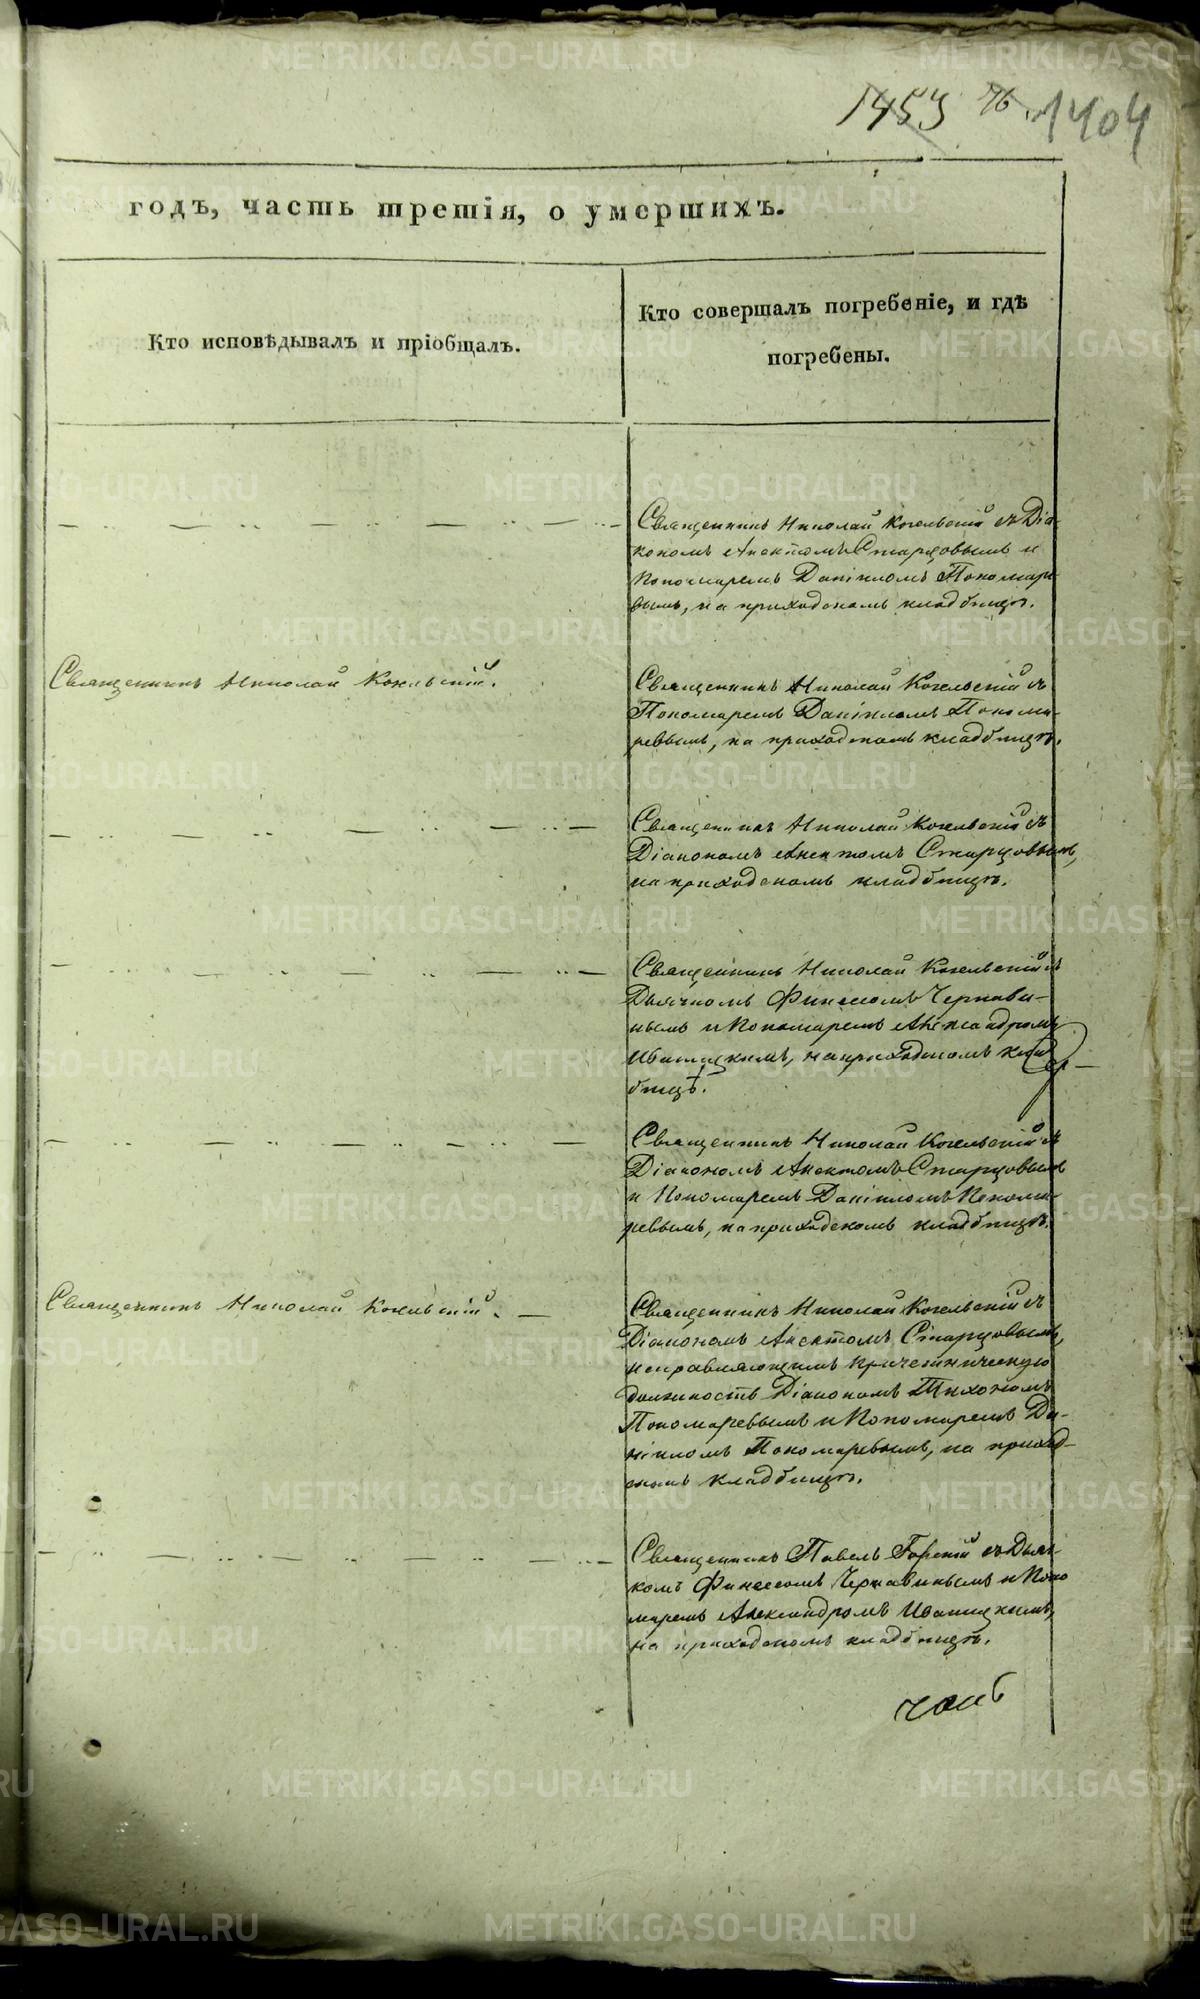 1453 76 1404
годъ, часть третія, о умершихъ.
Кто исповѣдывалъ и пріобщалъ.
Кто совершалъ погребеніе, и гдѣ
погребены.
Священникъ Николай Когельскій съ Діа-
кономъ Анектомъ Старцовымъ и
Пономаремъ Даніиломъ Понома-
вымъ, на приходскомъ кладбищѣ.
Священникъ Николай Когельскій.
Священникъ Николай Когельскій съ
Пономаремъ Даніиломъ Понома-
ревымъ, на приходскомъ кладбищѣ.
Священникъ Николай Когельскій съ
Діакономъ Анектомъ Старцовымъ,
на приходскомъ кладбищѣ.
Священникъ Николай Когельскій съ
Дьячкомъ Финеесомъ Чернави-
нымъ и Пономаремъ Александромъ
Иваницкимъ, на приходскомъ клад-
бищѣ.
Священникъ Николай Когельскій съ
Діакономъ Анектомъ Старцовымъ
и Пономаремъ Даніиломъ Понома-
ревымъ, на приходскомъ кладбищѣ.
Священникъ Николай Когельскій.
Священникъ Николай Когельскій съ
Діакономъ Анектомъ Старцовымъ,
исправляющимъ причетническую
должность Діакономъ Тихономъ
Пономаревымъ и Пономаремъ Да-
ніиломъ Пономаревымъ, на приход-
скомъ кладбищѣ.
Священникъ Павелъ Горскій съ Дьяч-
комъ Финеесомъ Чернавинымъ и Поно
маремъ Александромъ Иваницкимъ,
на приходскомъ кладбищѣ.
METRIKI.GASO-URAL.RU